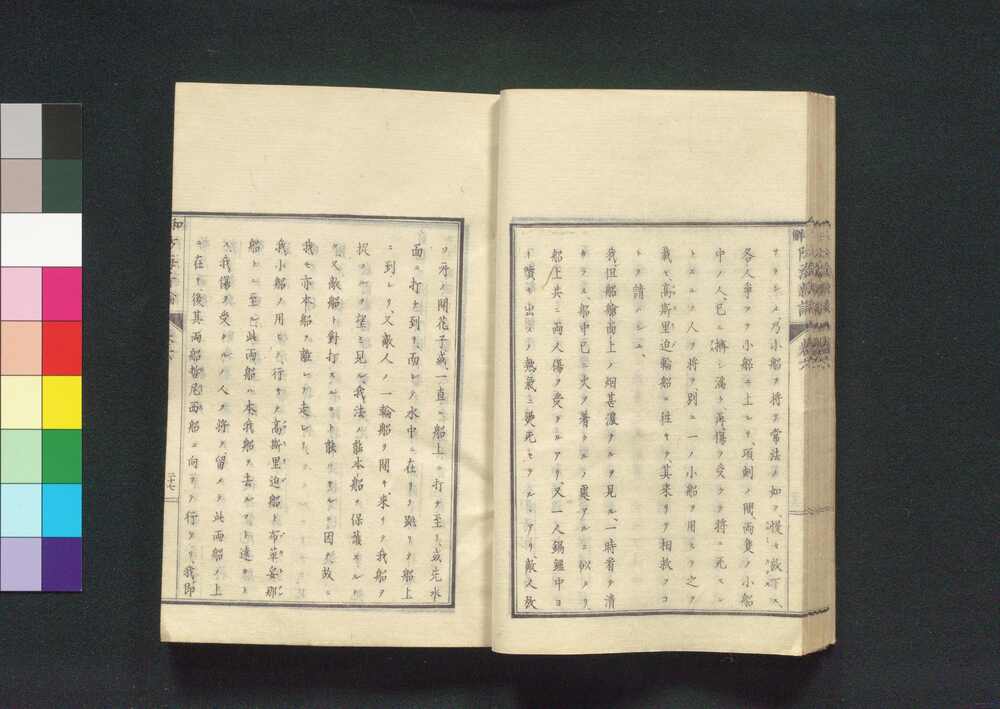 ナラシメ、乃小船ヲ将テ常法ノ如ク、慢々放下ス、
各人争フテ小船ニ上レリ、頃刻ノ間両隻ノ小船
中ノ人、已ニ擠シ満ツ、再傷ヲ受ケテ将ニ死セン
トスルノ人ヲ将テ、別ニ一ノ小船ヲ用ヒテ之ヲ
載セ、高斯里迫輪船ニ往キテ、其来リテ相救フコ
トヲ請ハシム、
我但船艙面上ノ烟甚濃ナルヲ見ル、一時看テ清
カラス、船中已ニ火ヲ着ケルノ處アルニ似タリ、
船上共ニ両人傷ヲ受クルアリ、又一人鍋鑪中ヨ
リ噴キ出スノ熱気ニ燙死セラルヽアリ、敵人放
ツ所ノ開花子、或一直ニ船上ニ打チ至リ、或先水
面ニ打チ到リ、而シテ水中ニ在リテ跳リテ船上
ニ到レリ、又敵人ノ一輪船ヲ開キ、来リテ我船ヲ
捉ルヲ望ミ見ル、我法ノ能本船ヲ保護スルナ
ク、又敵船ト對打スルコト能ハス、因テ故ニ
我モ亦本船ヲ離レテ走レリ、
我小船ノ用ヒ行キテ高斯里迫船ト布革妥那
船トニ至ル、此両船ハ本我船ヲ去ルコト遠カラ
ス、我傷ヲ受クルノ人ヲ将テ、留メテ此両船ノ上
ニ在キ、後其両船皆尼西船ニ向ツテ行ケリ、我即